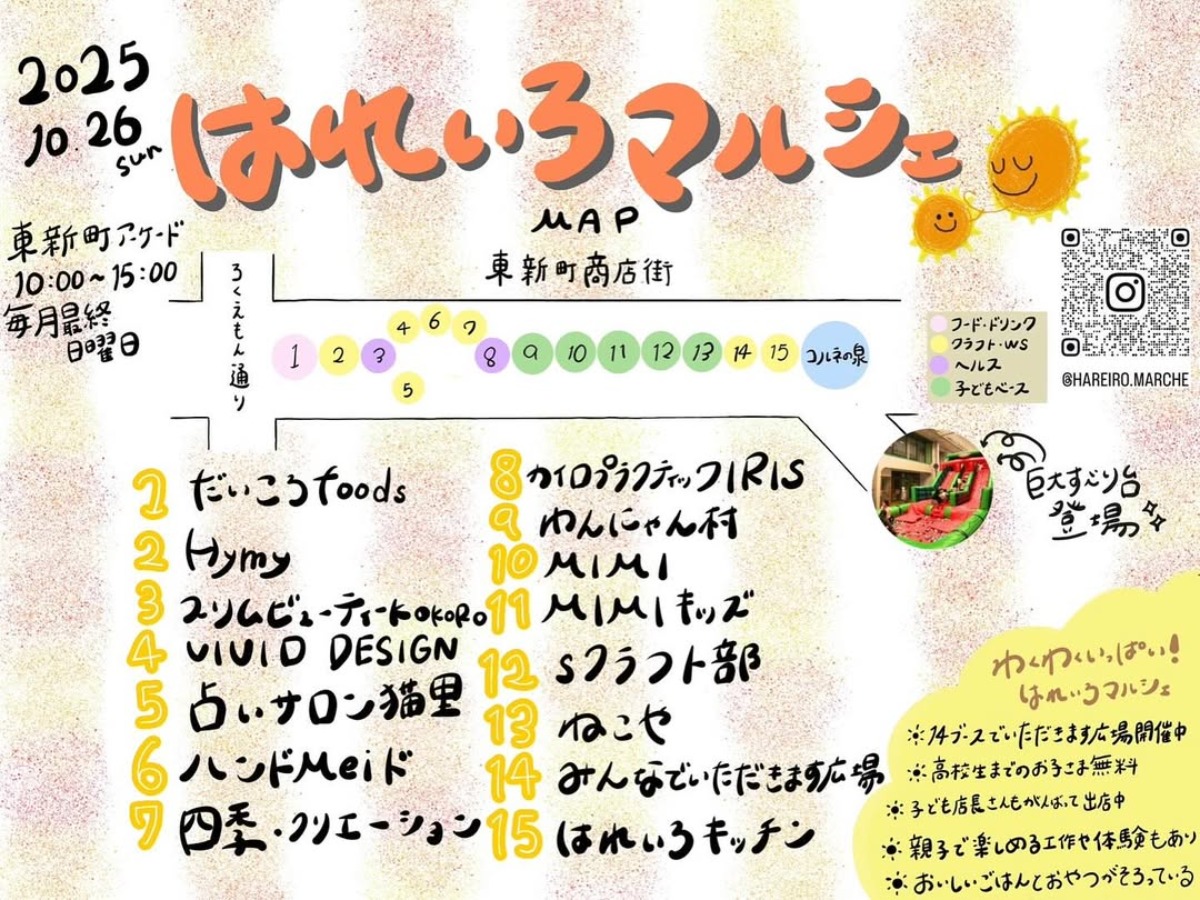 2025
10.26
sun
はれいろマルシェ
MAP
東新町商店街
東新町アーケード
10:00~15:00
毎月最終
日曜日
ろくえもん通り
1 2 3 4 5 6 7 8 9 10 11 12 13 14 15 コルネの泉
フード・ドリンク
クラフト・WS
ヘルス
子どもベース
@HAREIRO.MARCHE
巨大すべり台
登場
1 だいころfoods
2 Hymy
3 スリムビューティーKOKORO
4 VIVID DESIGN
5 占いサロン猫里
6 ハンドMeiド
7 四季・クリエーション
8 カイロプラクティックIRIS
9 わんにゃん村
10 MIMI
11 MIMIキッズ
12 sクラフト部
13 ねこや
14 みんなでいただきます広場
15 はれいろキッチン
わくわくいっぱい!
はれいろマルシェ
14ブースでいただきます広場開催中
高校生までのお子さま無料
子ども店長さんもがんばって出店中
親子で楽しめる工作や体験もあり
おいしいごはんとおやつがそろっている